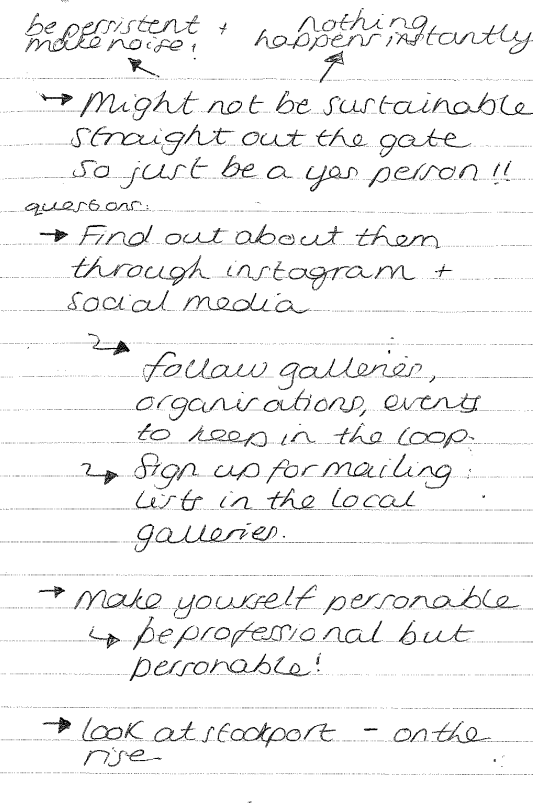 be persistent + nothing
make noise! happens instantly
→ Might not be sustainable
straight out the gate
so just be a yes person !!
questions:
→ Find out about them
through instagram +
social media
↳ follow galleries,
organisations, events
to keep in the loop.
↳ Sign up for mailing
lists in the local
galleries.
→ Make yourself personable
↳ be professional but
personable!
→ look at stockport - on the
rise